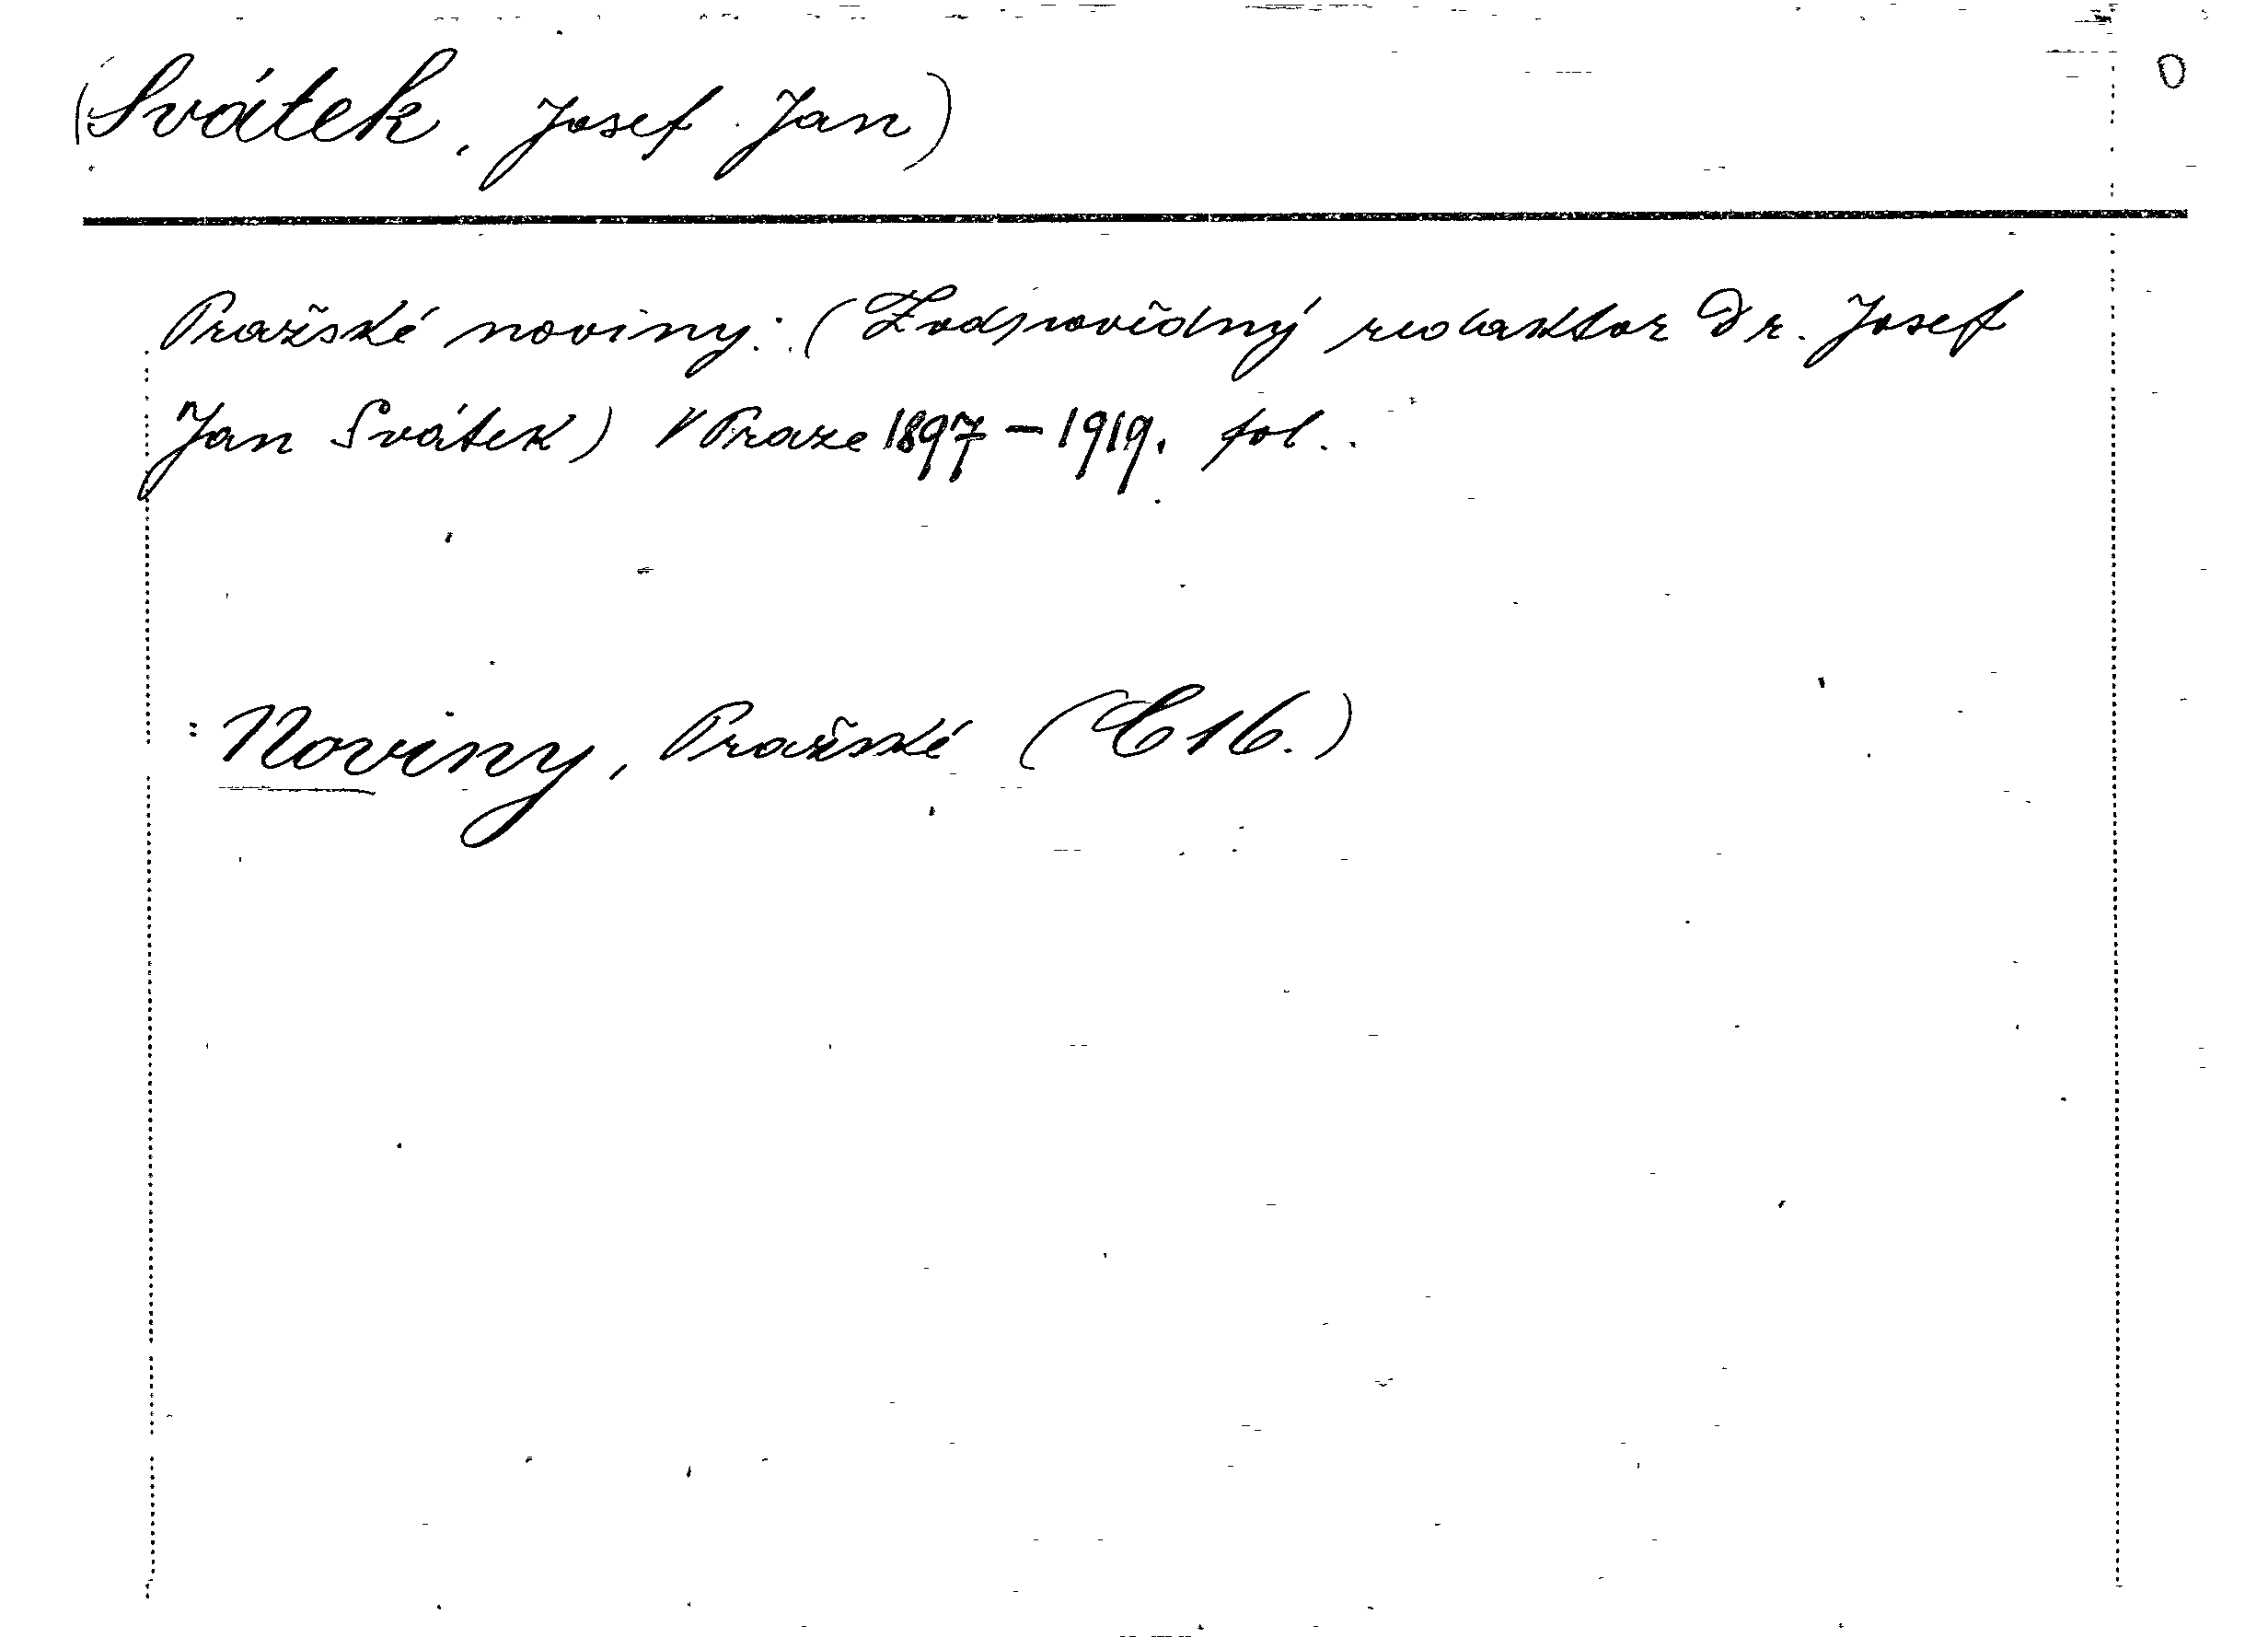 (Svátek, Josef Jan)
Pražské noviny: (Zodpovědný redaktor Dr. Josef
Jan Svátek) V Praze 1897 - 1919. fol..
: Noviny, Pražské (C 16.)